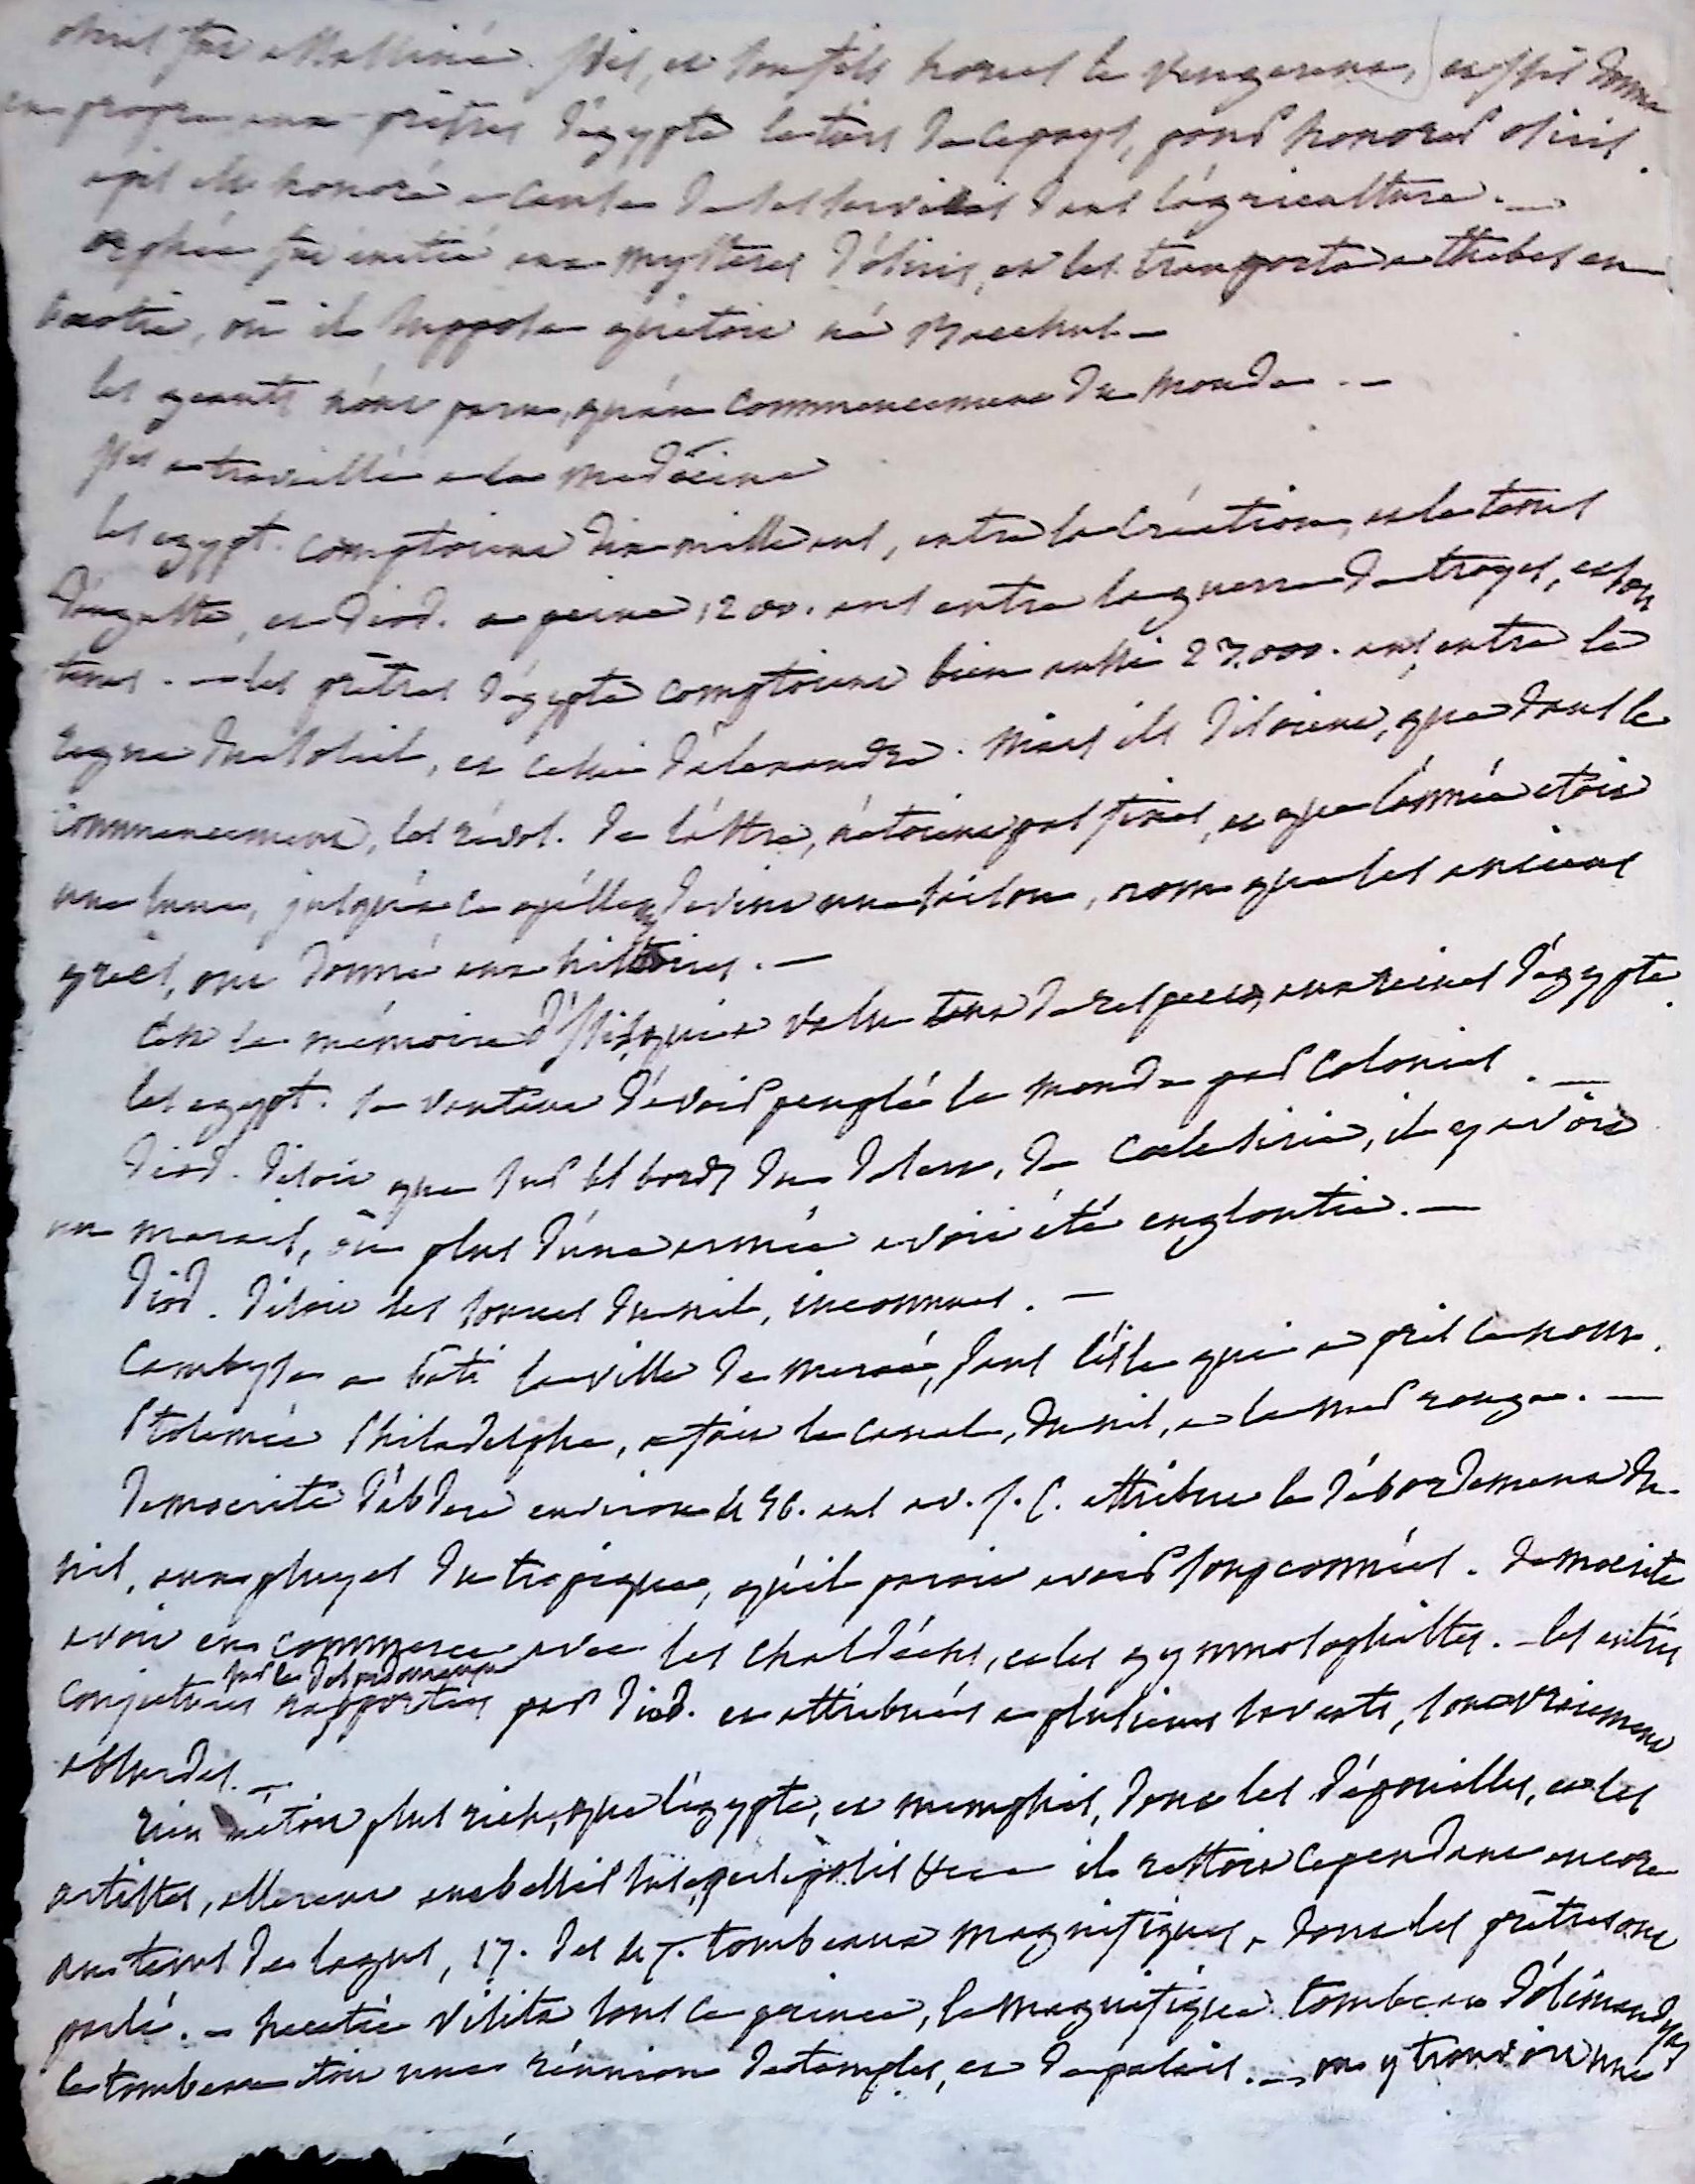 osiris fut assassiné. Isis, et son fils horus le vengerent, et Isis donna
en propre aux prêtres d'égypte le tiers de ce pays, pour honorer osiris.
apis est honoré a cause de ses services dans l'agriculture. —
orphée fut initié aux mysteres d'osiris, et les transporta a thebes en
beotie, où il supposa qu'étoit né Bacchus —
les geants n'ont paru, qu'au commencement du monde. —
Isis a travaillé a la medecine
les egypt. comptoient dix mille ans, entre la création, et le tems
d'auguste, et diod. a peine 1200. ans entre la guerre de troyes, et son
tems. — les prêtres d'égypte comptoient bien aussi 23,000. ans, entre le
regne du soleil, et celui d'alexandre. Mais ils disoient, que dans le
commencement, les révol. de l'astre, n'étoient pas fixes, et que l'année étoit
une lune, jusqu'à ce qu'elle devint une saison, nom que les anciens
grecs, ont donné aux histoires. —
C'est la mémoire d'Isis, qui a valu tant de respects, aux reines d'égypte.
les egypt. se vantent d'avoir peuplé le monde par colonies. —
diod. disoit que sur les bords du delta, de Coelesirie, il y avoit
un marais, où plus d'une armée avoit été engloutie. —
diod. disoit les sources du nil, inconnues. —
Cambyse a bâti la ville de meroé, dans l'isle qui a pris ce nom.
Ptolemée Philadelphe, a fait le canal, du nil, a la mer rouge. —
democrite d'abdere environ 496. ans av. J. C. attribue le débordement du
nil, aux pluyes du tropique, qu'il paroit avoir soupçonnées. democrite
avoit eu commerce avec les chaldéens, et les gymnosophistes. — les autres
conjectures sur le débordement rapportées par diod. et attribuées a plusieurs savants, sont vraiment
absurdes. —
rien n'étoit plus riche, que l'égypte, et memphis, dont les dépouilles, et les
artistes, allerent embellir suse, persépolis &c — il restoit cependant encore
au tems de lagus, 17. des 47. tombeaux magnifiques, dont les prêtres ont
parlé. — hecatée visita sous ce prince, le magnifique tombeau d'osimandyas
ce tombeau étoit une réunion de temples, et de palais. — on y trouvoit une